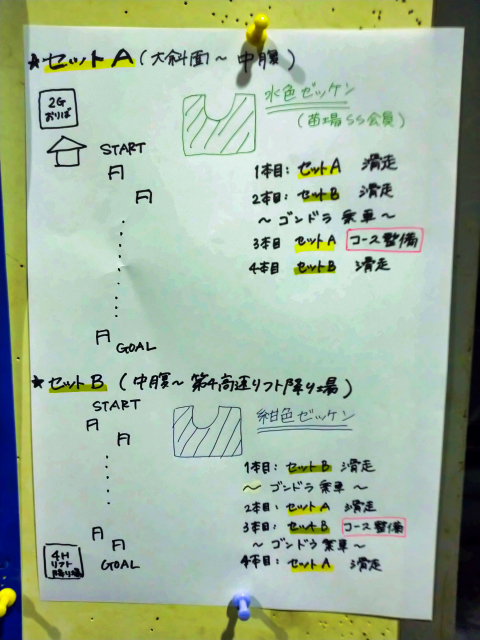 ★セットA (大斜面～中腹)
2G
おりば
水色ゼッケン
(苗場SS会員)
START
1本目: セットA 滑走
2本目: セットB 滑走
～ゴンドラ 乗車～
3本目 セットA コース整備
4本目 セットB 滑走
GOAL
★セットB (中腹～第4高速リフト降り場)
START
紺色ゼッケン
1本目: セットB 滑走
～ ゴンドラ 乗車 ～
2本目: セットA 滑走
3本目: セットB コース整備
～ ゴンドラ 乗車～
4本目: セットA 滑走
4H
リフト
降り場
GOAL